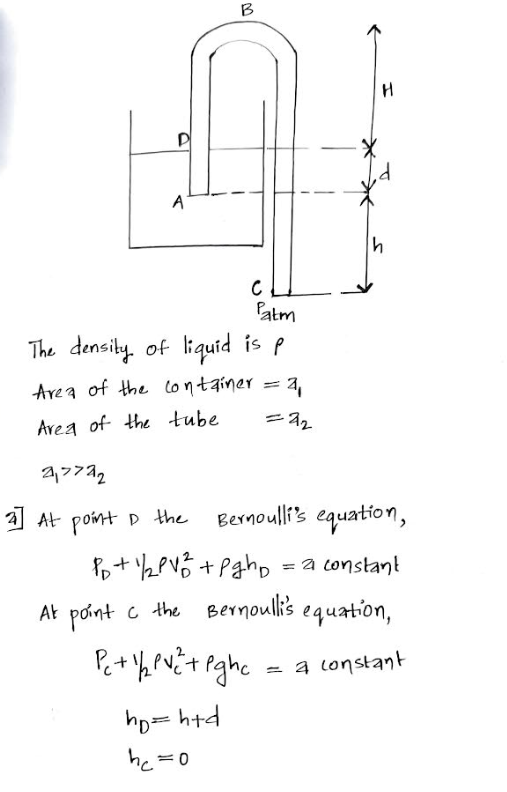 B
H
D
d
A
h
C
Patm
The density of liquid is ρ
Area of the container = a₁
Area of the tube = a₂
a₁>>a₂
a] At point D the Bernoulli's equation,
P_D + 1/2 ρV_D² + ρgh_D = a constant
At point C the Bernoulli's equation,
P_C + 1/2 ρV_C² + ρgh_C = a constant
h_D = h+d
h_C = 0